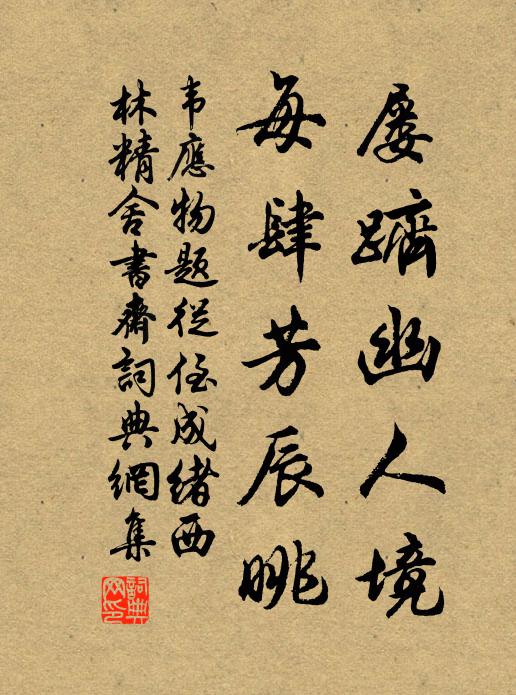 屡躋幽人境
每肆芳辰眺
韦應物題從侄成緒西
林精舍書齋詞典網集
詞典
网印